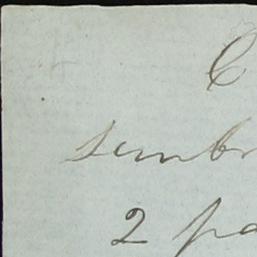 C
sembr
2 pa